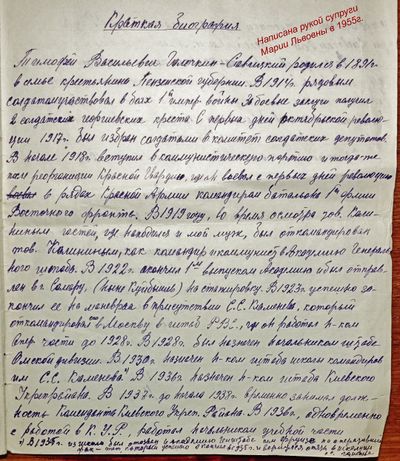 Краткая биография
Написана рукой супруги
Марии Львовены в 1955г.
Тимофей Васильевич Галочкин-Савицкий родился в 1891г
в семье крестьянина Пензенской губернии. В 1914г. рядовым
солдатом участвовал в боях 1ой импер войны. За боевые заслуги получил
2 солдатских георгиевских креста. С первых дней октябрьской револю-
ции 1917г. был избран солдатами в комитет солдатских депутатов.
В начале 1918г. вступил в коммунистическую партию и тогда-же
Красной Гвардии, где он воевал с первых дней революции
в рядах Красной Армии командиром батальона 1ой Армии
Восточного фронта. В 1919 году, во время осмотра тов. Кали-
ниным частей, где находился и мой муж, был откомандирован
тов. Калининым, как командир и коммунист в Академию Генераль-
ного штаба. В 1922г. окончил 1ым выпуском Академию и был отправ-
лен в г. Самару, (ныне Куйбышев) на стажировку. В 1923г. успешно за-
кончил ее на маневрах в присутствии С.С. Каменева, который
откомандировал в Москву в штаб РВС, где он работал н-ком
опер. части до 1928г. В 1928г. был назначен начальником штаба
Омской дивизии. В 1930г. назначен н-ком штаба школы командиров
им С.С. Каменева. В 1936г назначен н-ком штаба Киевского
Укрепрайона. В 1937г. до начала 1938г. временно занимал долж-
ность Коменданта Киевского Укреп. Района. В 1936г, одновременно
с работой в К.У.Р., работал начальником учебной части
В 1935г. из школы был в академию им Фрунзе на оперативный
фак-тет, который успешно окончил в 1935г. и вернулся